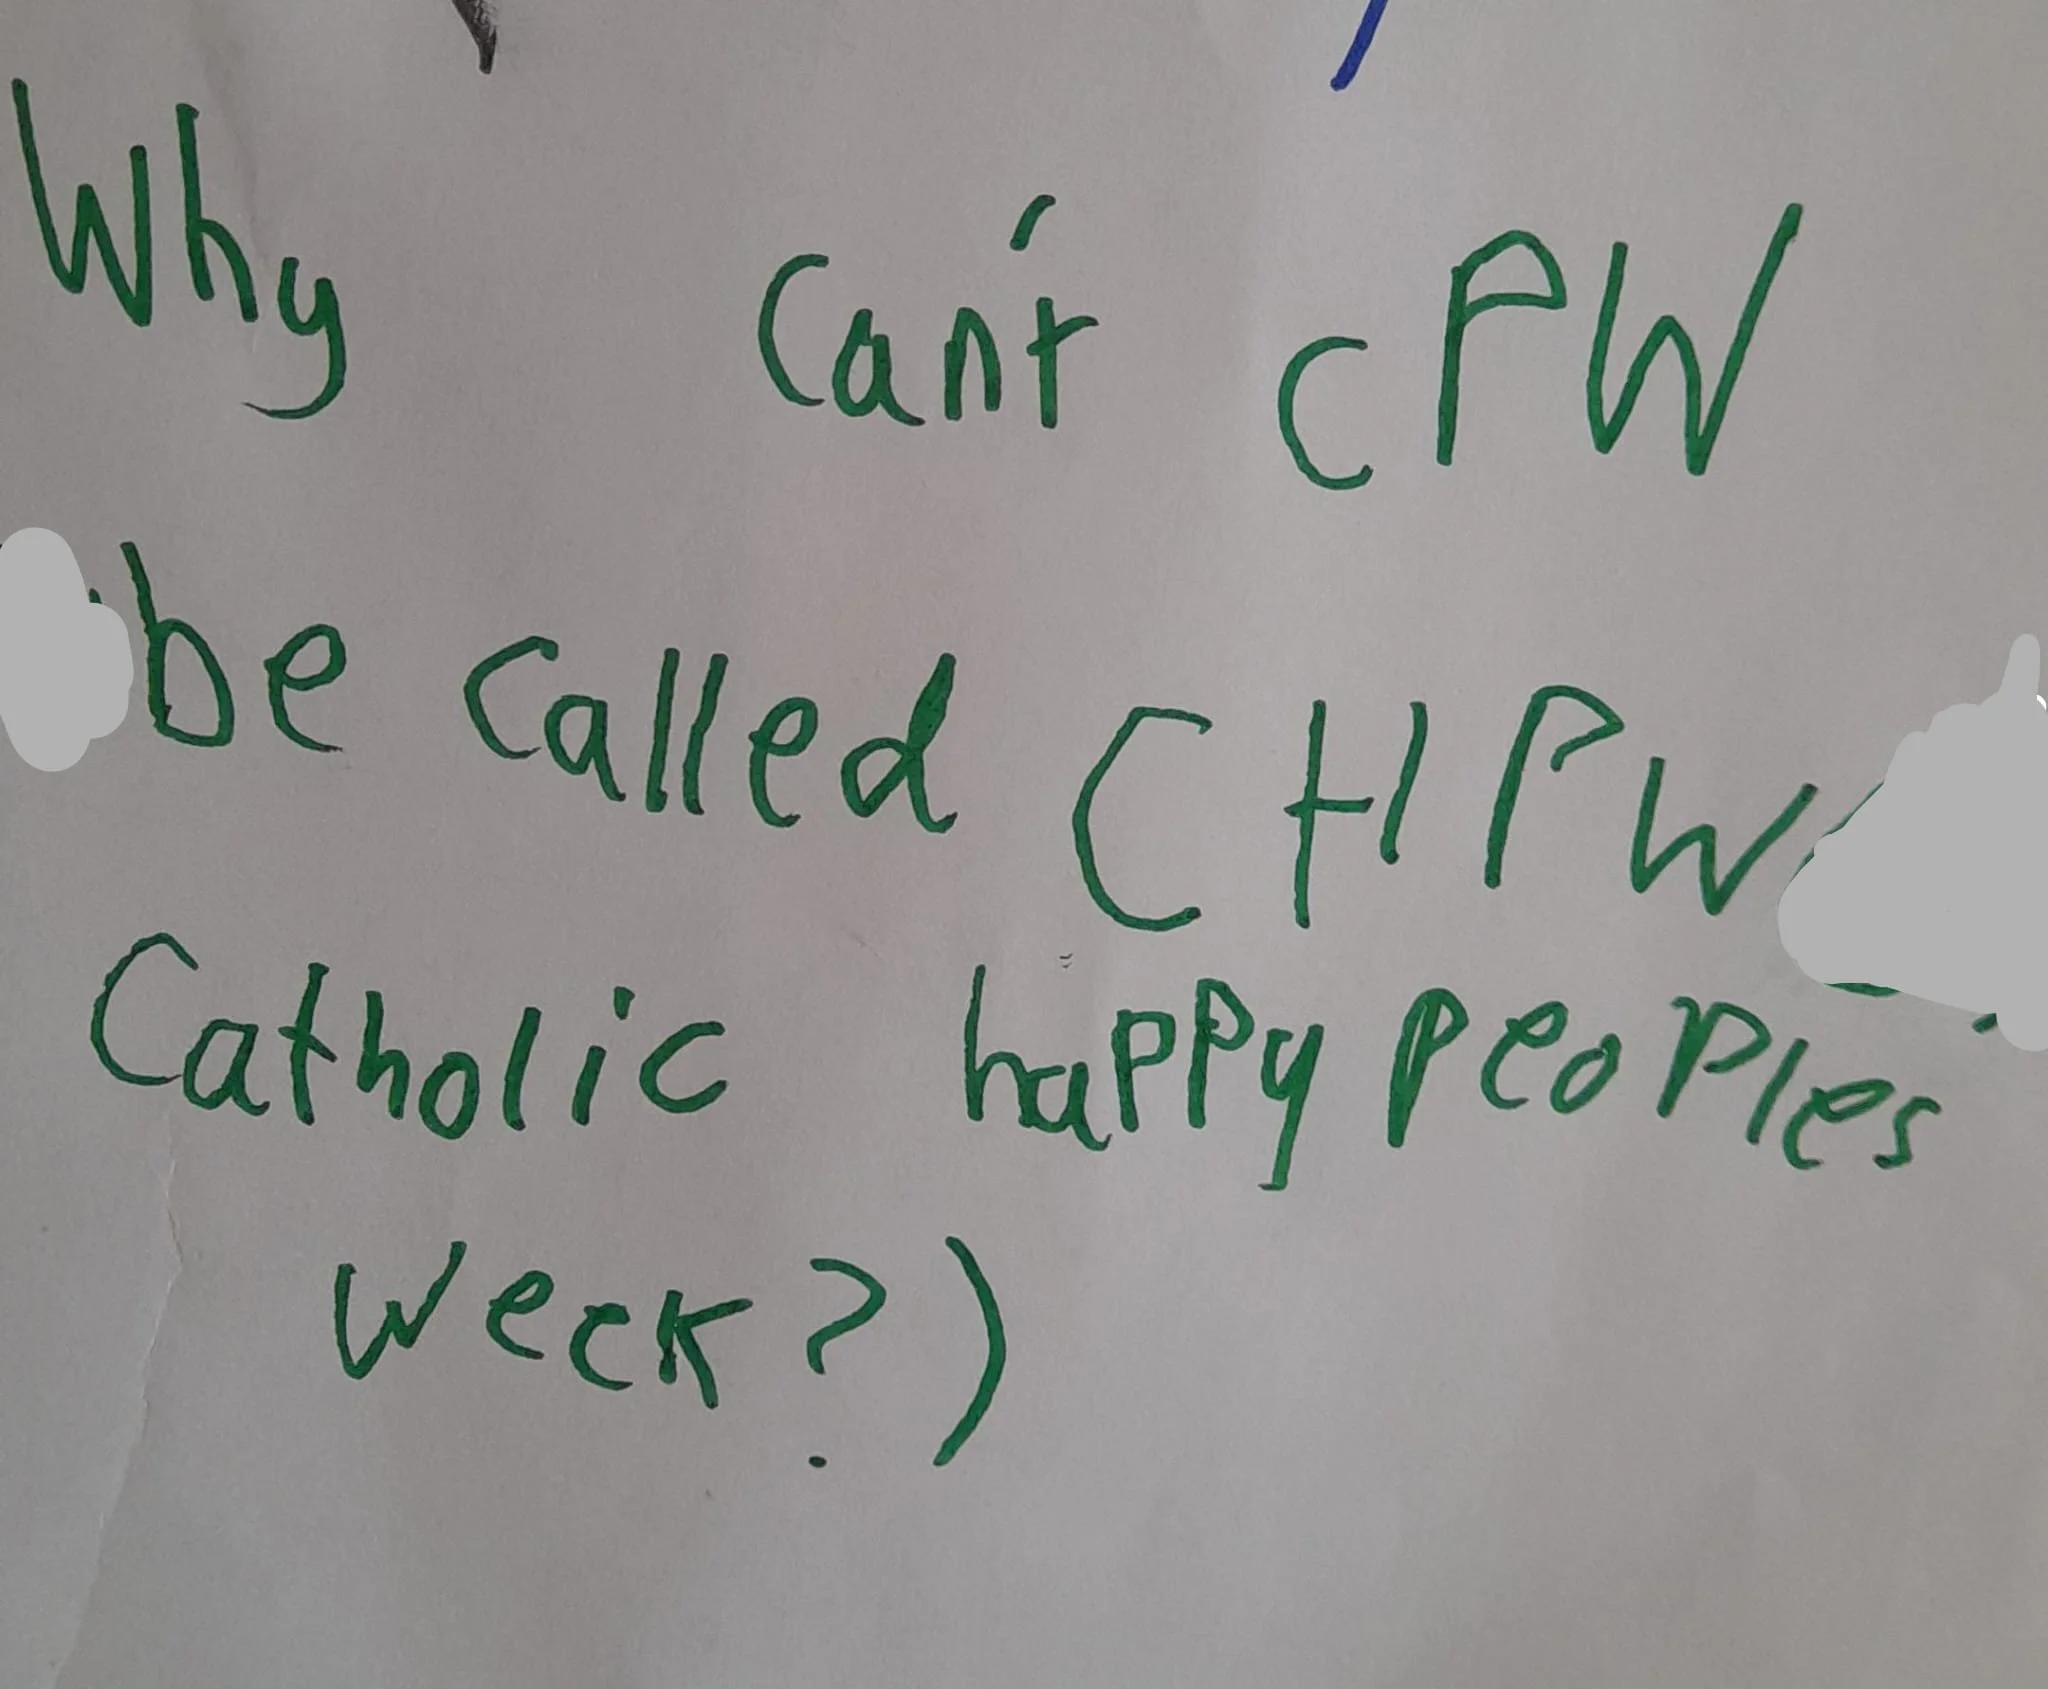 Why can't CPW
be called CHPW
Catholic happy peoples
week?)